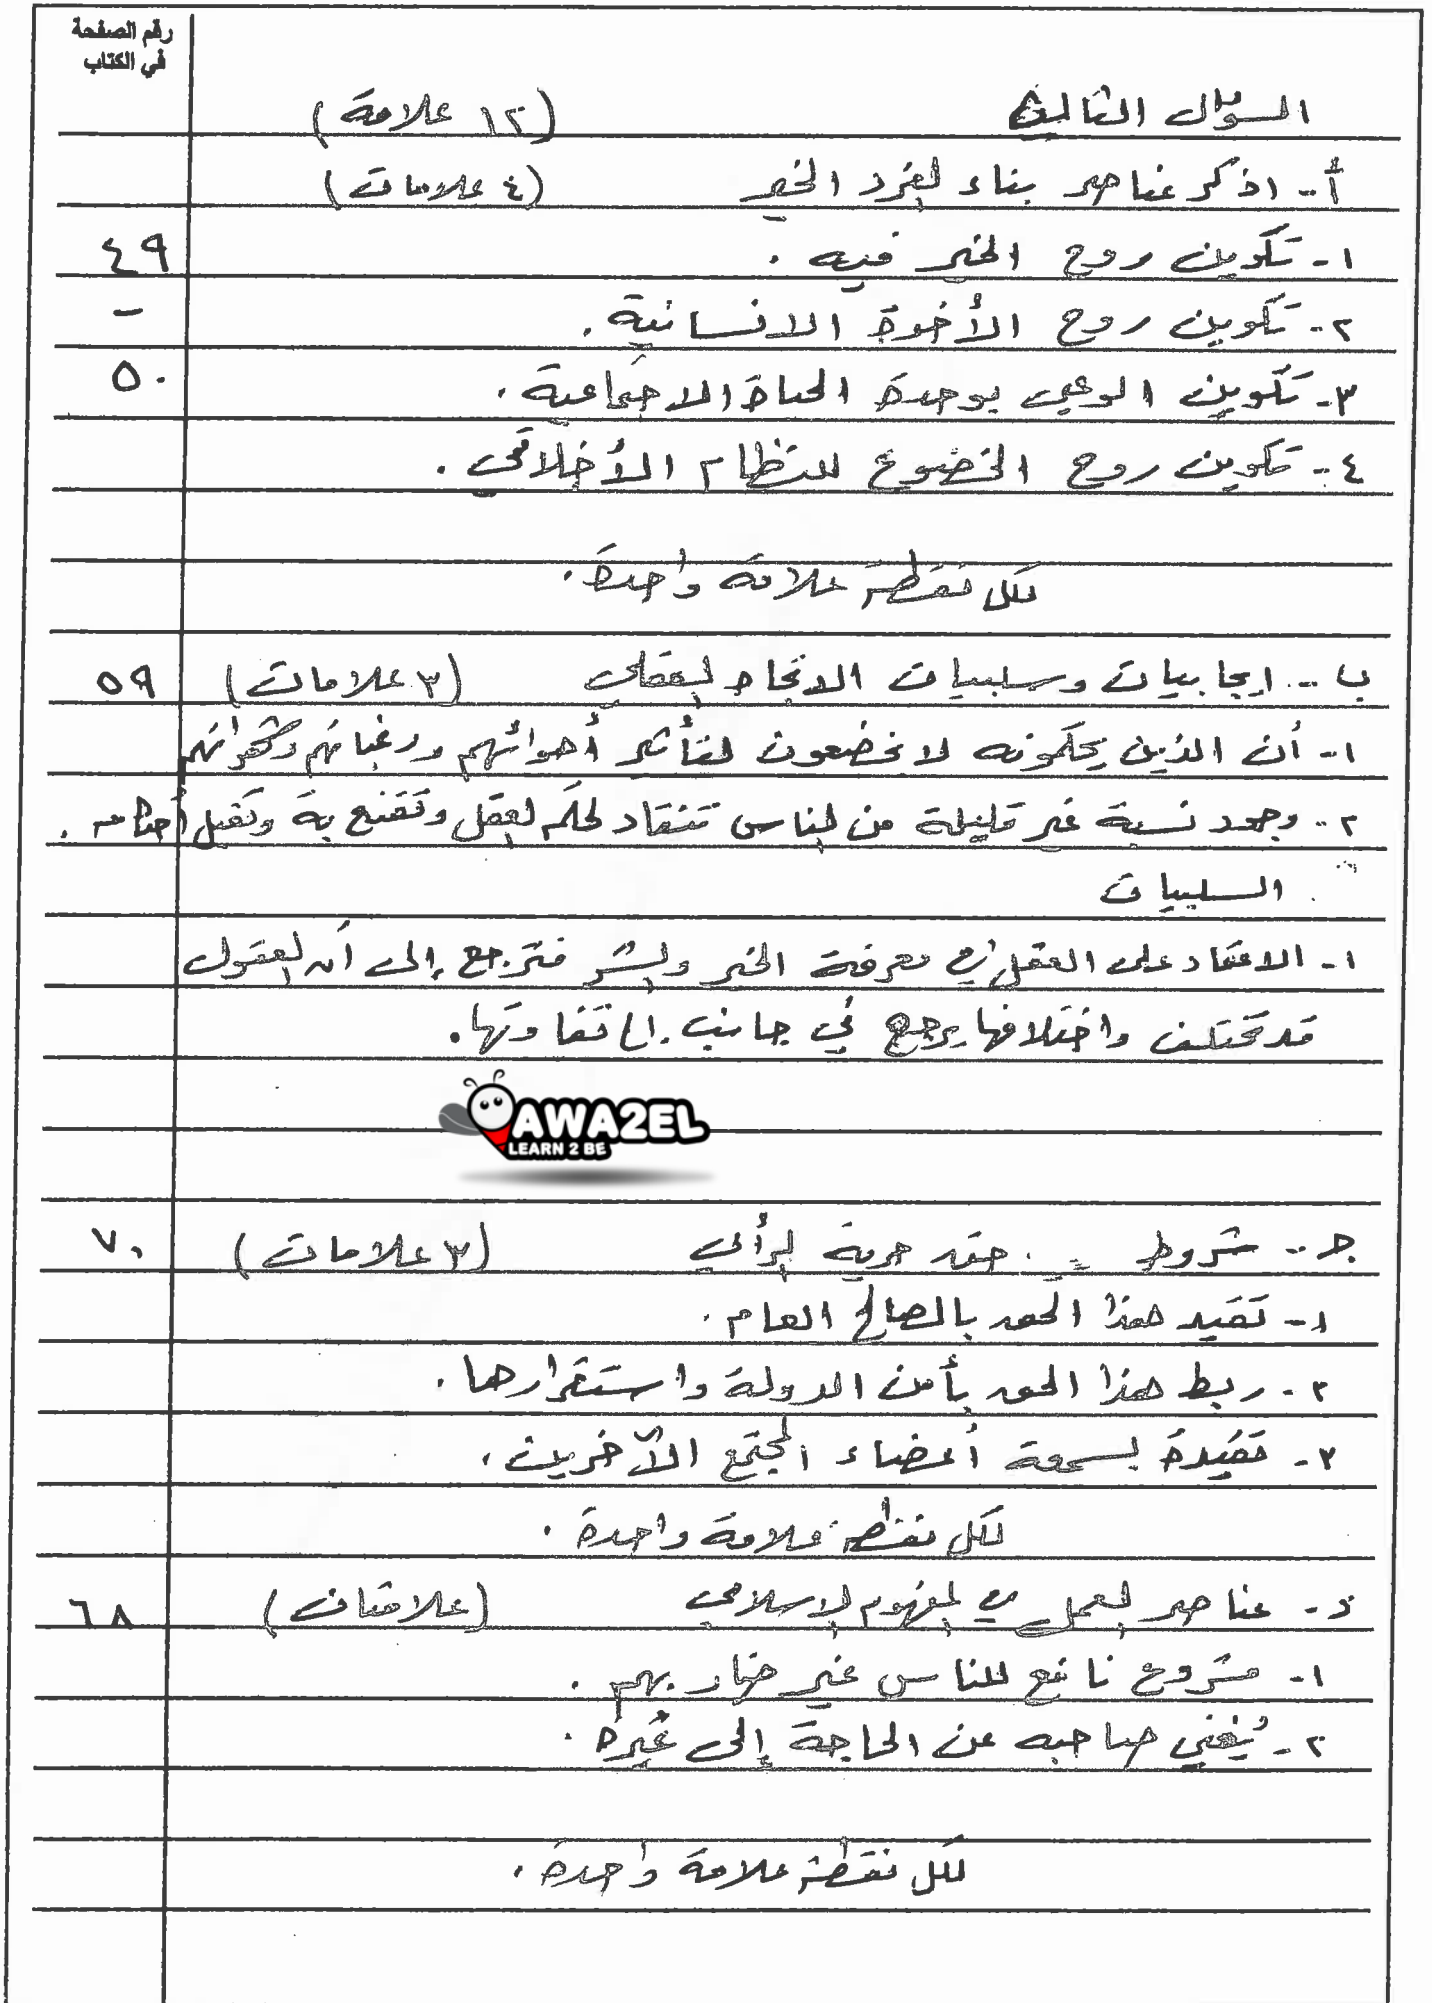 رقم الصفحة
في الكتاب
السؤال الثالث (١٢ علامة)
أ- اذكر عناصر بناء الفرد الخير (٤ علامات)
١- تكوين روح الخير فيه . ٤٩
٢- تكوين روح الأخوة الانسانية . -
٣- تكوين الوعي بوحدة الحياة الاجتماعية . ٥٠
٤- تكوين روح الخضوع للنظام الأخلاقي .
لكل نقطة علامة واحدة .
ب - ايجابيات وسلبيات الاتجاه العقلي (٣ علامات) ٥٩
١- أن الذين يحكمونه لا يخضعون لتأثير أهوائهم ورغباتهم وشهواتهم
٢- وجود نسبة غير قليلة من الناس تنقاد لحكم العقل وتقتنع به وتقبل أحكامه .
السلبيات
١- الاعتماد على العقل في معرفة الخير والشر فترجع إلى أن العقول
قد تختلف واختلافها يرجع في جانب الى تفاوتها .
AWA2EL
LEARN 2 BE
جـ - شروط حق حرية الرأي (٣ علامات) ٧٠
١- تقيد هذا الحق بالصالح العام .
٢- ربط هذا الحق بأمن الدولة واستقرارها .
٣- تقيده بسمعة أعضاء المجتمع الآخرين .
لكل نقطة علامة واحدة .
د - عناصر العمل في المفهوم الإسلامي (علامتان) ٦٨
١- مشروع نافع للناس غير ضار بهم .
٢- يُغني صاحبه عن الحاجة إلى غيره .
لكل نقطة علامة واحدة .